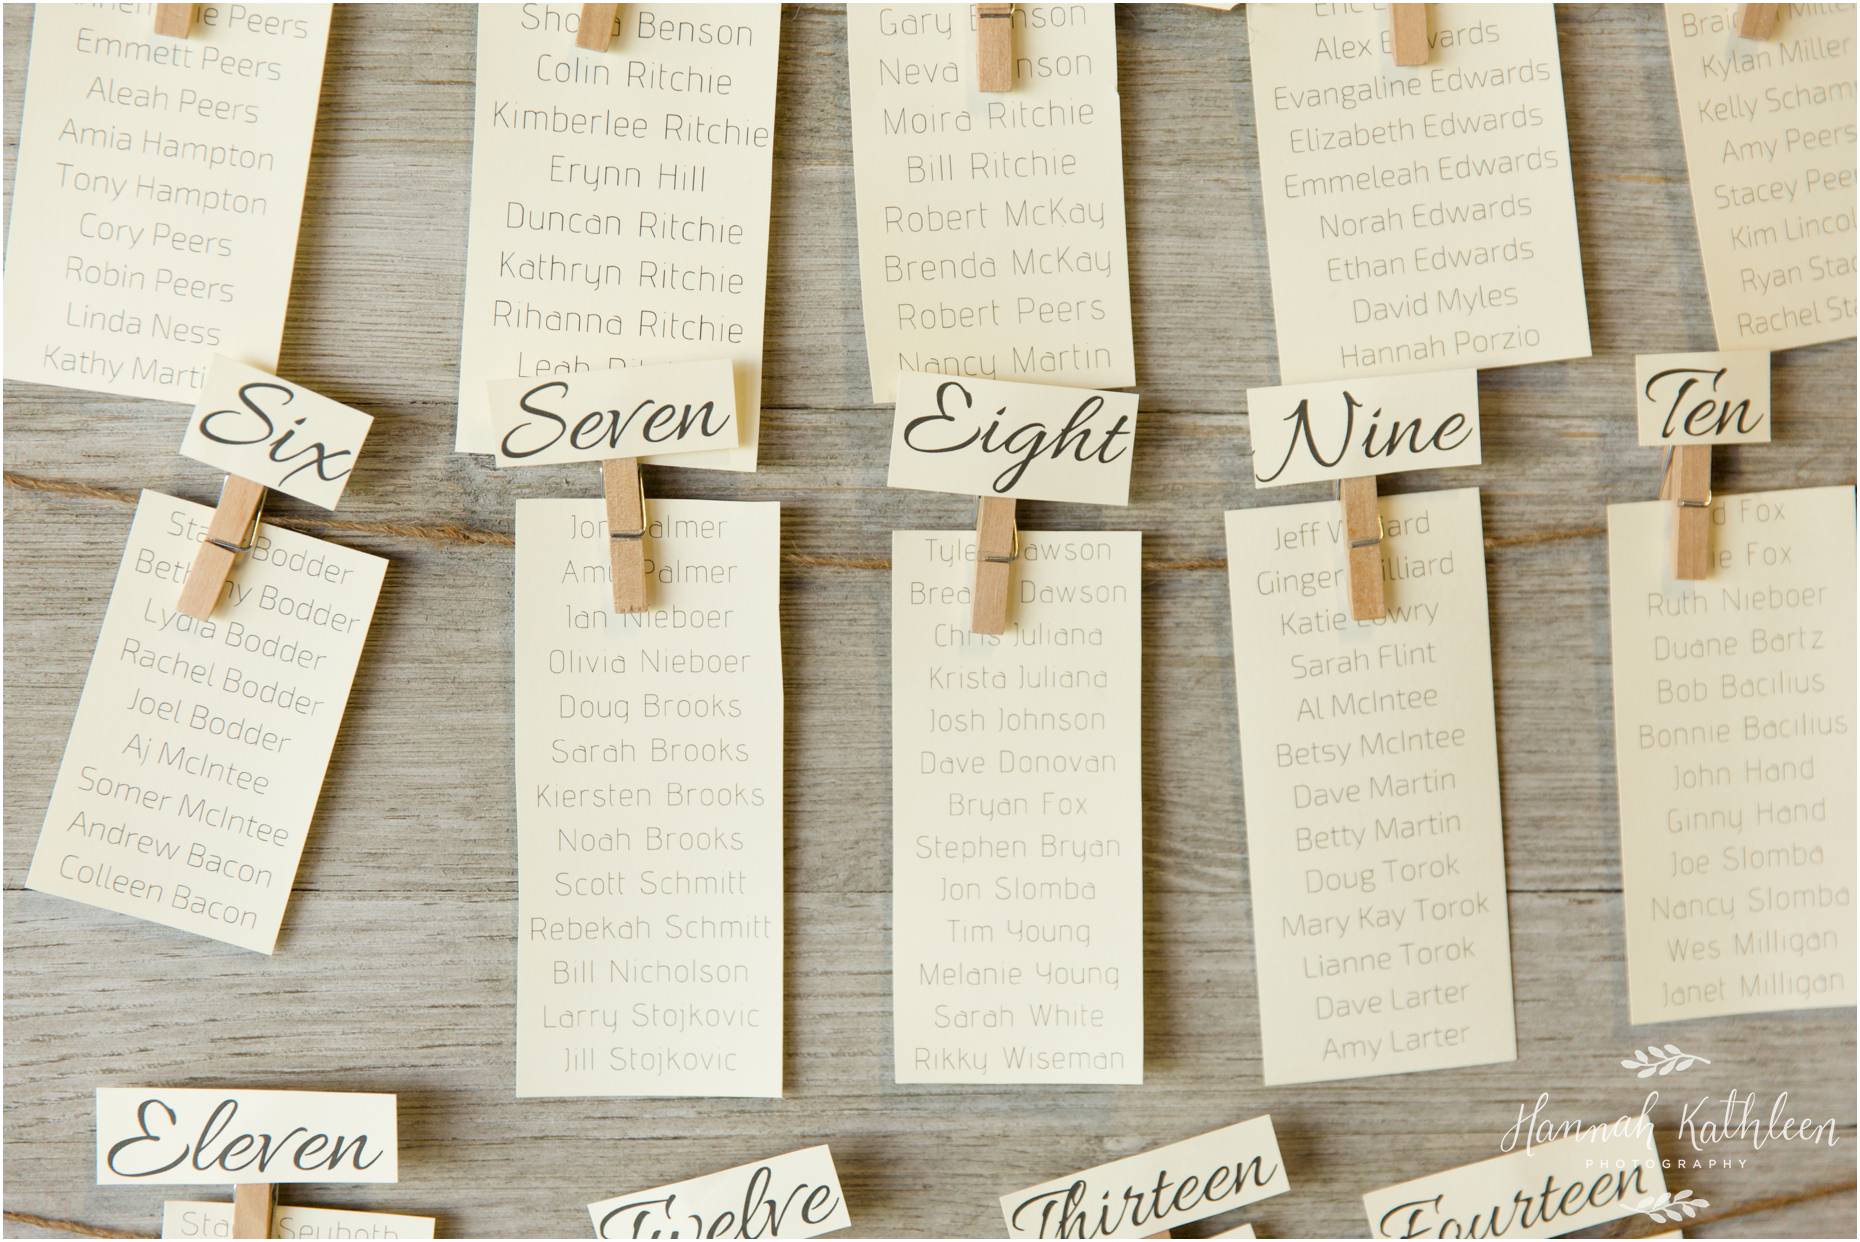 Peers
Emmett Peers
Aleah Peers
Amia Hampton
Tony Hampton
Cory Peers
Robin Peers
Linda Ness
Kathy
Benson
Colin Ritchie
Kimberlee Ritchie
Erynn Hill
Duncan Ritchie
Kathryn Ritchie
Rihanna Ritchie
Leah
Gary
Neva
Moira Ritchie
Bill Ritchie
Robert McKay
Brenda McKay
Robert Peers
Nancy Martin
Alex Edwards
Evangaline Edwards
Elizabeth Edwards
Emmeleah Edwards
Norah Edwards
Ethan Edwards
David Myles
Hannah Porzio
Miller
Kylan Miller
Kelly
Amy Peers
Stacey
Kim
Ryan
Rachel
Six
Bodder
Bethany Bodder
Lydia Bodder
Rachel Bodder
Joel Bodder
Aj McIntee
Somer McIntee
Andrew Bacon
Colleen Bacon
Seven
Palmer
Palmer
Ian Nieboer
Olivia Nieboer
Doug Brooks
Sarah Brooks
Kiersten Brooks
Noah Brooks
Scott Schmitt
Rebekah Schmitt
Bill Nicholson
Larry Stojkovic
Jill Stojkovic
Eight
Tyler Dawson
Dawson
Chris Juliana
Krista Juliana
Josh Johnson
Dave Donovan
Bryan Fox
Stephen Bryan
Jon Slomba
Tim Young
Melanie Young
Sarah White
Rikky Wiseman
Nine
Jeff
Ginger
Katie Lowry
Sarah Flint
Al McIntee
Betsy McIntee
Dave Martin
Betty Martin
Doug Torok
Mary Kay Torok
Lianne Torok
Dave Larter
Amy Larter
Ten
Fox
Fox
Ruth Nieboer
Duane Bartz
Bob Bacilius
Bonnie Bacilius
John Hand
Ginny Hand
Joe Slomba
Nancy Slomba
Wes Milligan
Janet Milligan
Eleven
Seyboth
Twelve
Thirteen
Fourteen
Hannah Kathleen
PHOTOGRAPHY